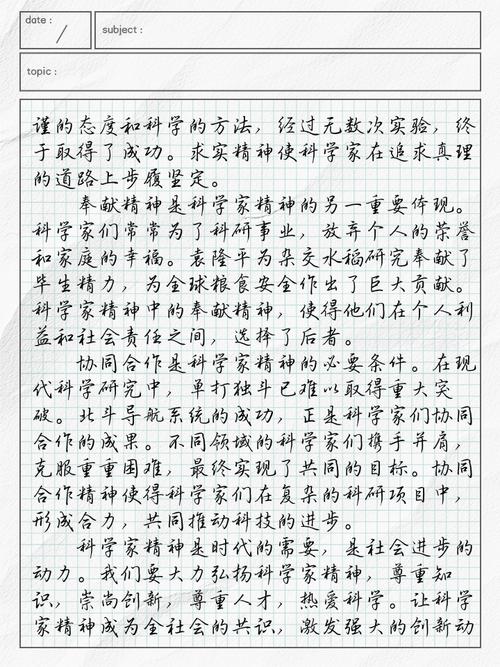 date :
subject :
topic :
谨的态度和科学的方法，经过无数次实验，终
于取得了成功。求实精神使科学家在追求真理
的道路上步履坚定。
奉献精神是科学家精神的另一重要体现。
科学家们常常为了科研事业，放弃个人的荣誉
和家庭的幸福。袁隆平为杂交水稻研究奉献了
毕生精力，为全球粮食安全作出了巨大贡献。
科学家精神中的奉献精神，使得他们在个人利
益和社会责任之间，选择了后者。
协同合作是科学家精神的必要条件。在现
代科学研究中，单打独斗已难以取得重大突
破。北斗导航系统的成功，正是科学家们协同
合作的成果。不同领域的科学家们携手并肩，
克服重重困难，最终实现了共同的目标。协同
合作精神使得科学家们在复杂的科研项目中，
形成合力，共同推动科技的进步。
科学家精神是时代的需要，是社会进步的
动力。我们要大力弘扬科学家精神，尊重知
识，崇尚创新，尊重人才，热爱科学。让科学
家精神成为全社会的共识，激发强大的创新动